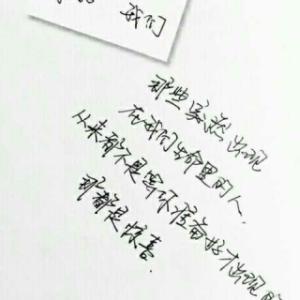 我们
那些突然出现
在我们生命里的人.
从来都不是等你准备好才出现的
那都是惊喜.